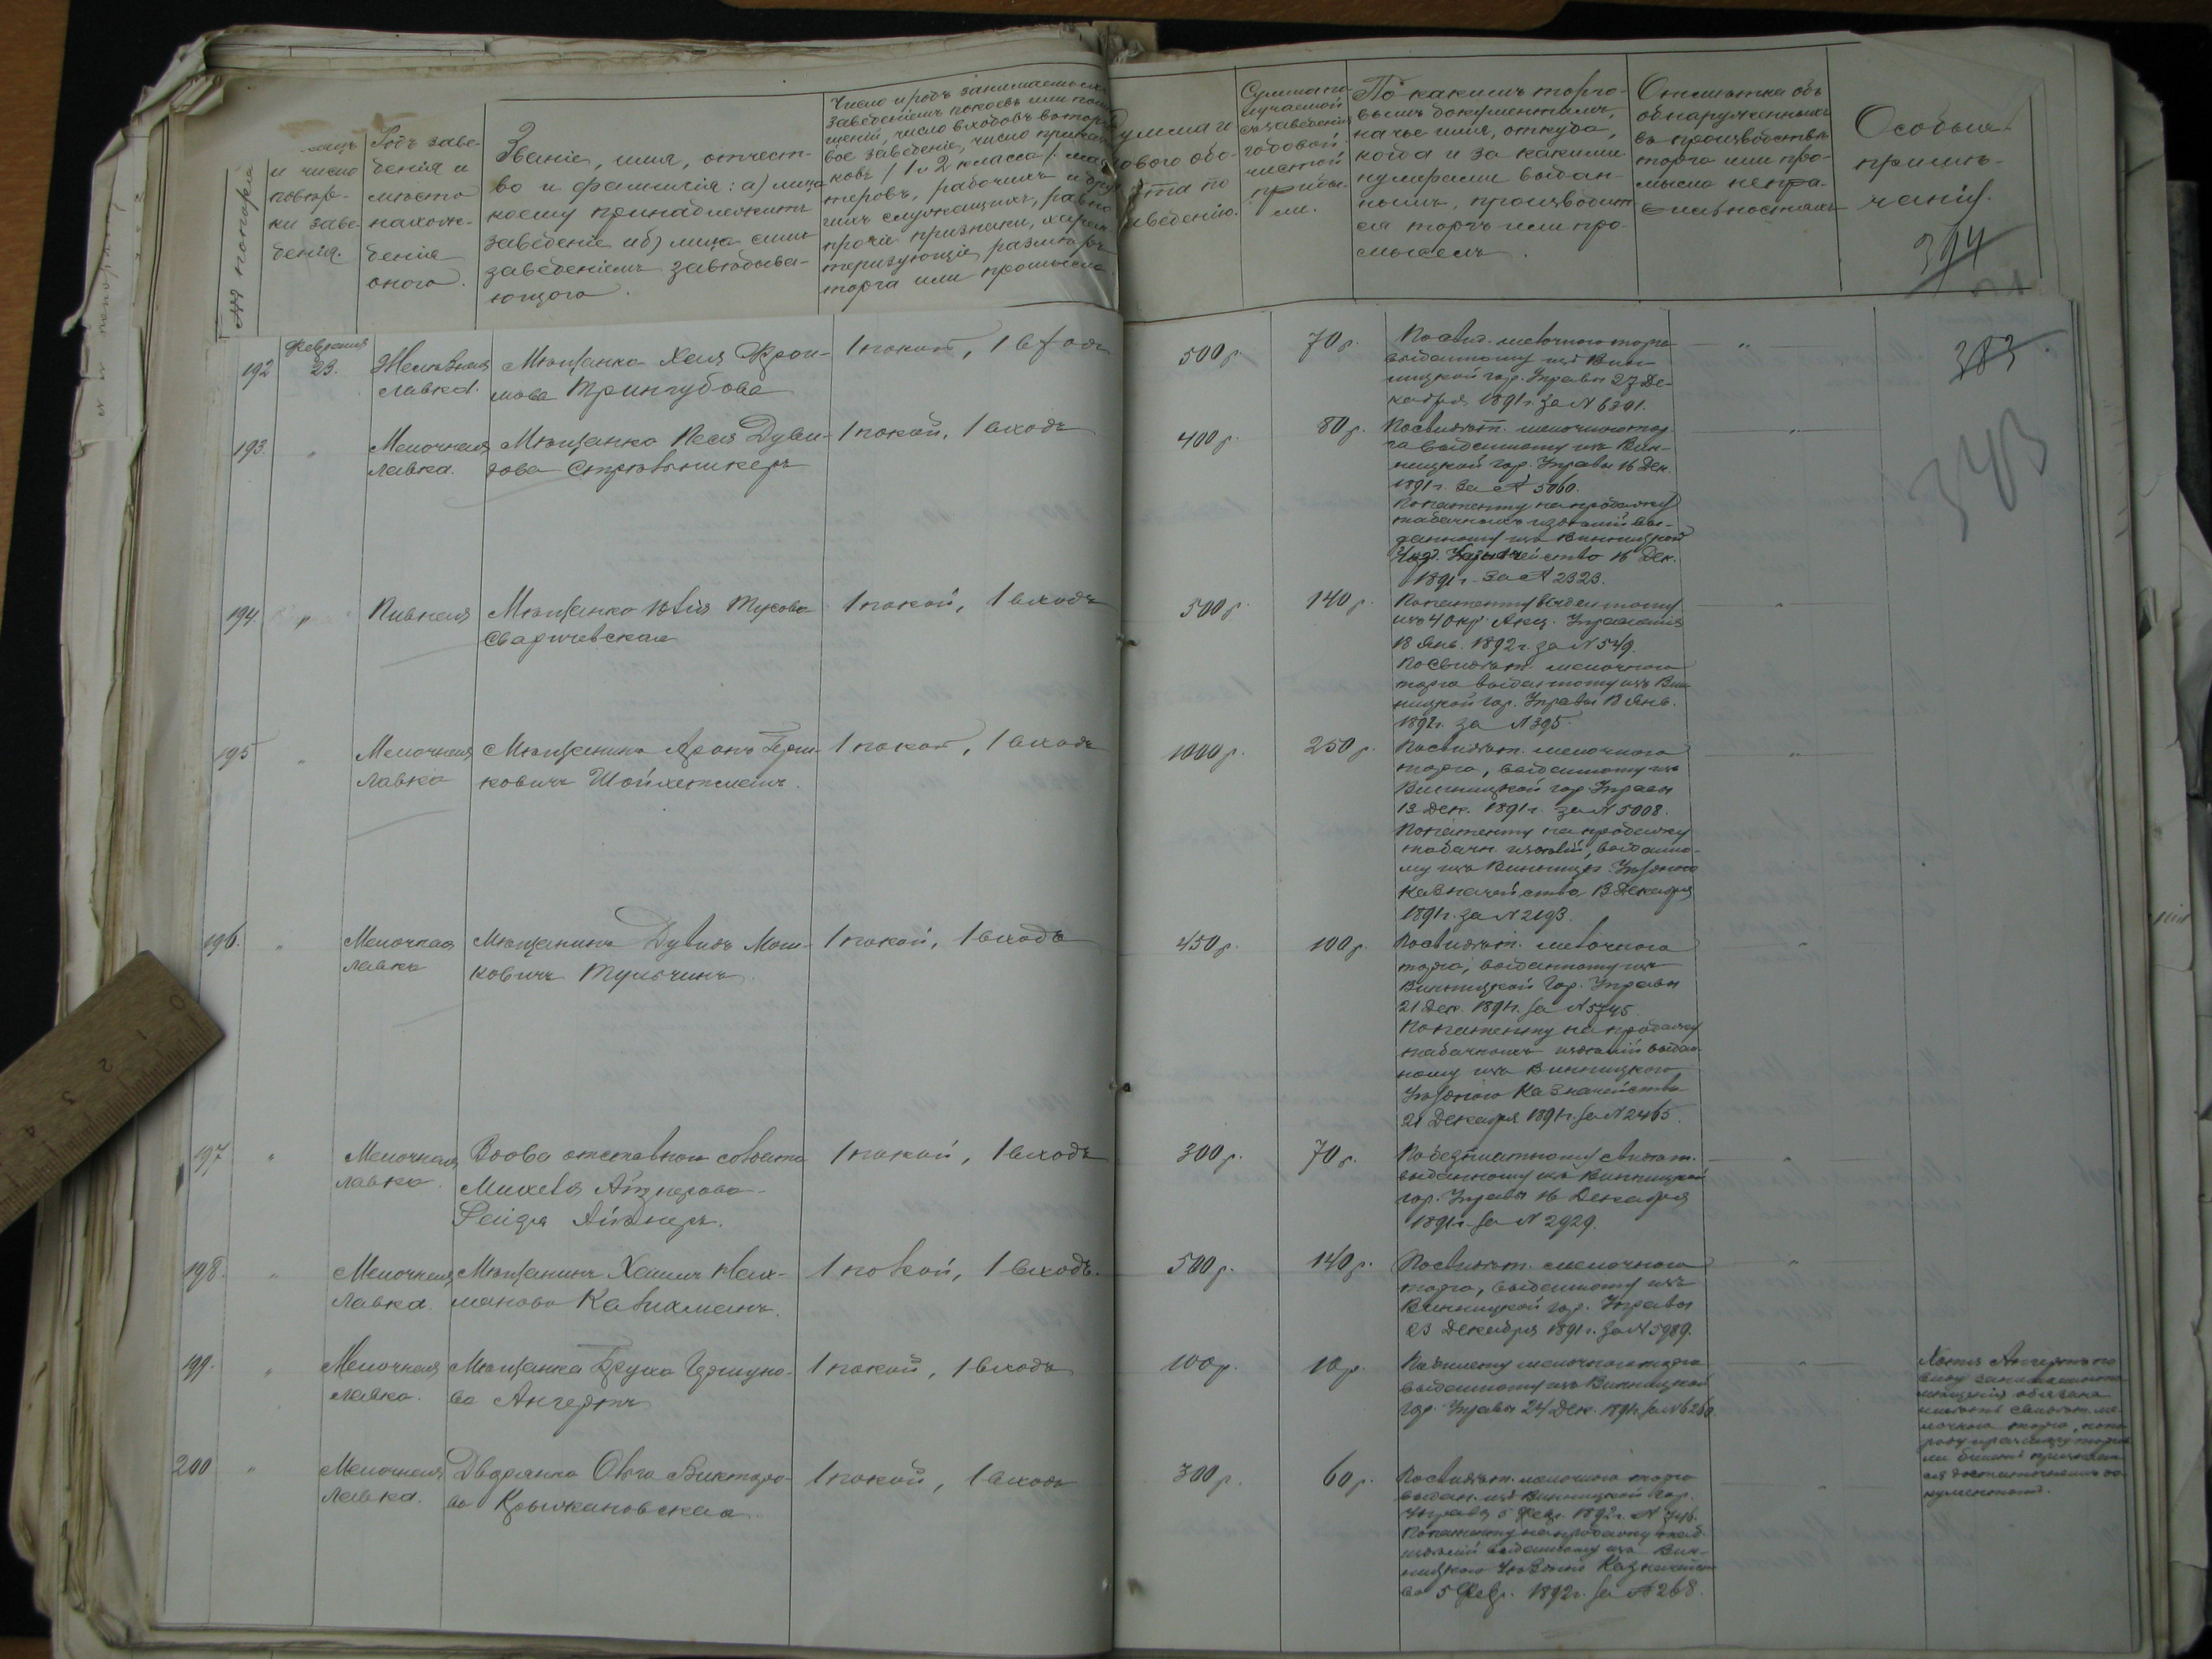 №№ по порядку
и число
повѣр-
ки заве-
денія.
Родъ заве-
денія и
мѣсто
нахож-
денія
онаго.
Званіе, имя, отчест-
во и фамилія: а) лица
коему принадлежитъ
заведеніе и б) лица симъ
заведеніемъ завѣдыва-
ющаго.
Число и родъ занимаемыхъ
заведеніемъ покоевъ или помѣ
щеній, число входовъ въ торго
вое заведеніе, число приказчи
ковъ 1 и 2 класса
теровъ, рабочихъ и дру
гихъ служащихъ, равно
прочіе признаки, харак
теризующіе размѣръ
торга или промысла.
Сумма г
ового обо-
ота по
аведенію.
Сумма по-
лучаемой
съ заведенія
годовой
чистой
прибы-
ли.
По какимъ торго-
вымъ документамъ,
на чье имя, откуда,
когда и за какими
нумерами выдан-
нымъ, производит
ся торгъ или про-
мыселъ.
Отмѣтка объ
обнаруженныхъ
въ производствѣ
торга или про-
мысла непра-
вильностяхъ
Особыя
примѣ-
чанія.
394
383.
343
192
Февраля
23.
Желѣзная
лавка.
Мѣщанка Хая Фрои-
мова Трингубова
1 покой, 1 входъ
500 р.
70 р.
По свид. мелочного торга
выданному изъ Вин-
ницкой гор. Управы 27 Де-
кабря 1891 г. за № 6391.
"
193.
"
Мелочная
лавка.
Мѣщанка Песя Дуви-
дова
1 покой, 1 входъ
400 р.
80 р.
По свидѣт. мелочного тор
га выданному изъ Вин-
ницкой гор. Управы 16 Дек.
1891 г. за № 5060.
По патенту на продажу
табачныхъ издѣлій вы-
данному изъ Винницкой
Уѣзд. Казначейства 16 Дек.
1891 г. за № 2323.
"
194.
"
Пивная
Мѣщанка
Сваричевская
1 покой, 1 входъ
500 р.
140 р.
По патенту выданному
изъ 4 окр. Акц. Управленія
18 Янв. 1892 г. за № 549.
По свидѣт. мелочного
торга выданному изъ Вин-
ницкой гор. Управы 13 Янв.
1892 г. за № 395.
"
195
"
Мелочная
лавка
Мѣщанинъ Аронъ Герш-
ковичъ Шойхетманъ.
1 покой, 1 входъ
1000 р.
250 р.
По свидѣт. мелочного
торга, выданному изъ
Винницкой гор. Управы
13 Дек. 1891 г. за № 5008.
По патенту на продажу
табачн. издѣлій, выданно-
му изъ Винницк. Уѣзднаго
Казначейства 13 Декабря
1891 г. за № 2193.
"
196.
"
Мелочная
лавка
Мѣщанинъ Дувидъ Мош-
ковичъ Тульчинъ.
1 покой, 1 входъ
450 р.
100 р.
По свидѣт. мелочного
торга, выданному изъ
Винницкой Гор. Управы
21 Дек. 1891 г. за № 5745.
По патенту на продажу
табачныхъ издѣлій выдан-
ному изъ Винницкого
Уѣзднаго Казначейства
21 Декабря 1891 г. за № 2465.
"
197
"
Мелочная
лавка.
Вдова отставного солдата
Михеля Айзнерова
Айзнеръ.
1 покой, 1 входъ
300 р.
70 р.
По безплатному свидѣт.
выданному изъ Винницкой
гор. Управы 16 Декабря
1891 г. за № 2929.
"
198.
"
Мелочная
лавка.
Мѣщанинъ Хаимъ Нах-
мановъ
1 покой, 1 входъ.
500 р.
140 р.
По свидѣт. мелочного
торга, выданному изъ
Винницкой гор. Управы
23 Декабря 1891 г. за № 5989.
"
199.
"
Мелочная
лавка.
Мѣщанка Бруха
ва Ангертъ
1 покой, 1 входъ
100 р.
10 р.
По билету мелочного торга
выданному изъ Винницкой
Гор. Управы 24 Дек. 1891 г. за № 6260.
"
Хотя Ангертъ по
виду занимаемаго по-
мѣщенія обязана
имѣть свидѣт. ме-
лочного торга, но по
роду и размѣру торгов-
ли билетъ признает-
ся достаточнымъ до-
кументомъ.
200
"
Мелочная
лавка.
Дворянка Ольга Викторо-
ва Крыжановская.
1 покой, 1 входъ
300 р.
60 р.
По свидѣт. мелочного торга
выдан. изъ Винницкой Гор.
Управы 5 Февр. 1892 г. № 746.
По патенту на продажу таб.
издѣлій выданному изъ Вин-
ницкого Уѣздно Казначейст
ва 5 Февр. 1892 г. за № 268.
"